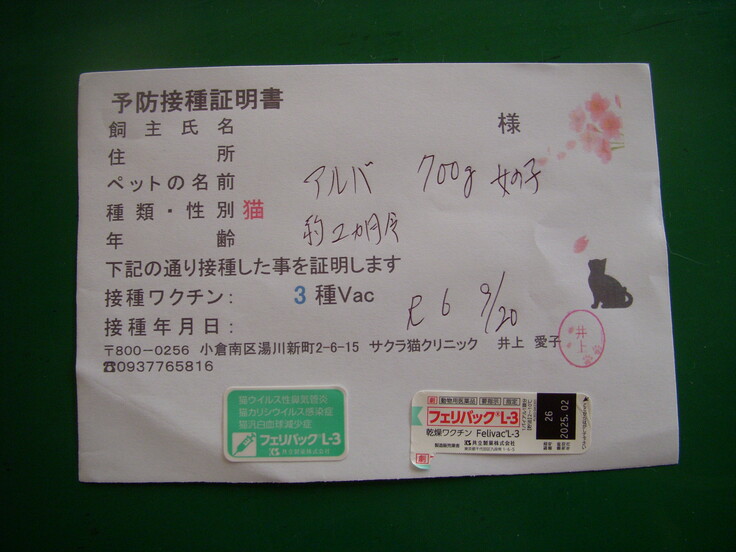 予防接種証明書
飼主氏名 様
住所
ペットの名前 アルバ 700g 女の子
種類・性別 猫
年齢 約2カ月令
下記の通り接種した事を証明します
接種ワクチン: 3種Vac
接種年月日: R6 9/20
〒800-0256 小倉南区湯川新町2-6-15 サクラ猫クリニック 井上 愛子
☎0937765816
井上
猫ウイルス性鼻気管炎
猫カリシウイルス感染症
猫汎白血球減少症
フェリバックL-3
共立製薬株式会社
劇 動物用医薬品 要指示 指定
フェリバックL-3
乾燥ワクチン Felivac L-3
共立製薬株式会社
26
2025.02
劇